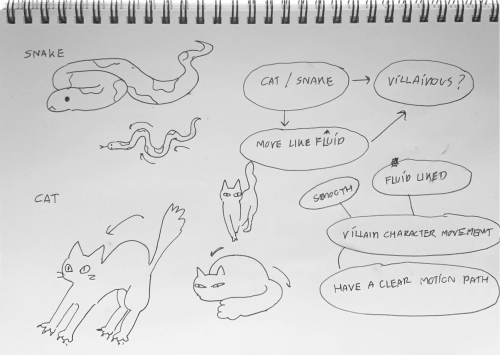 SNAKE
CAT / SNAKE
VILLAINOUS?
MOVE LIKE FLUID
CAT
SMOOTH
FLUID LIKED
VILLAIN CHARACTER MOVEMENT
HAVE A CLEAR MOTION PATH